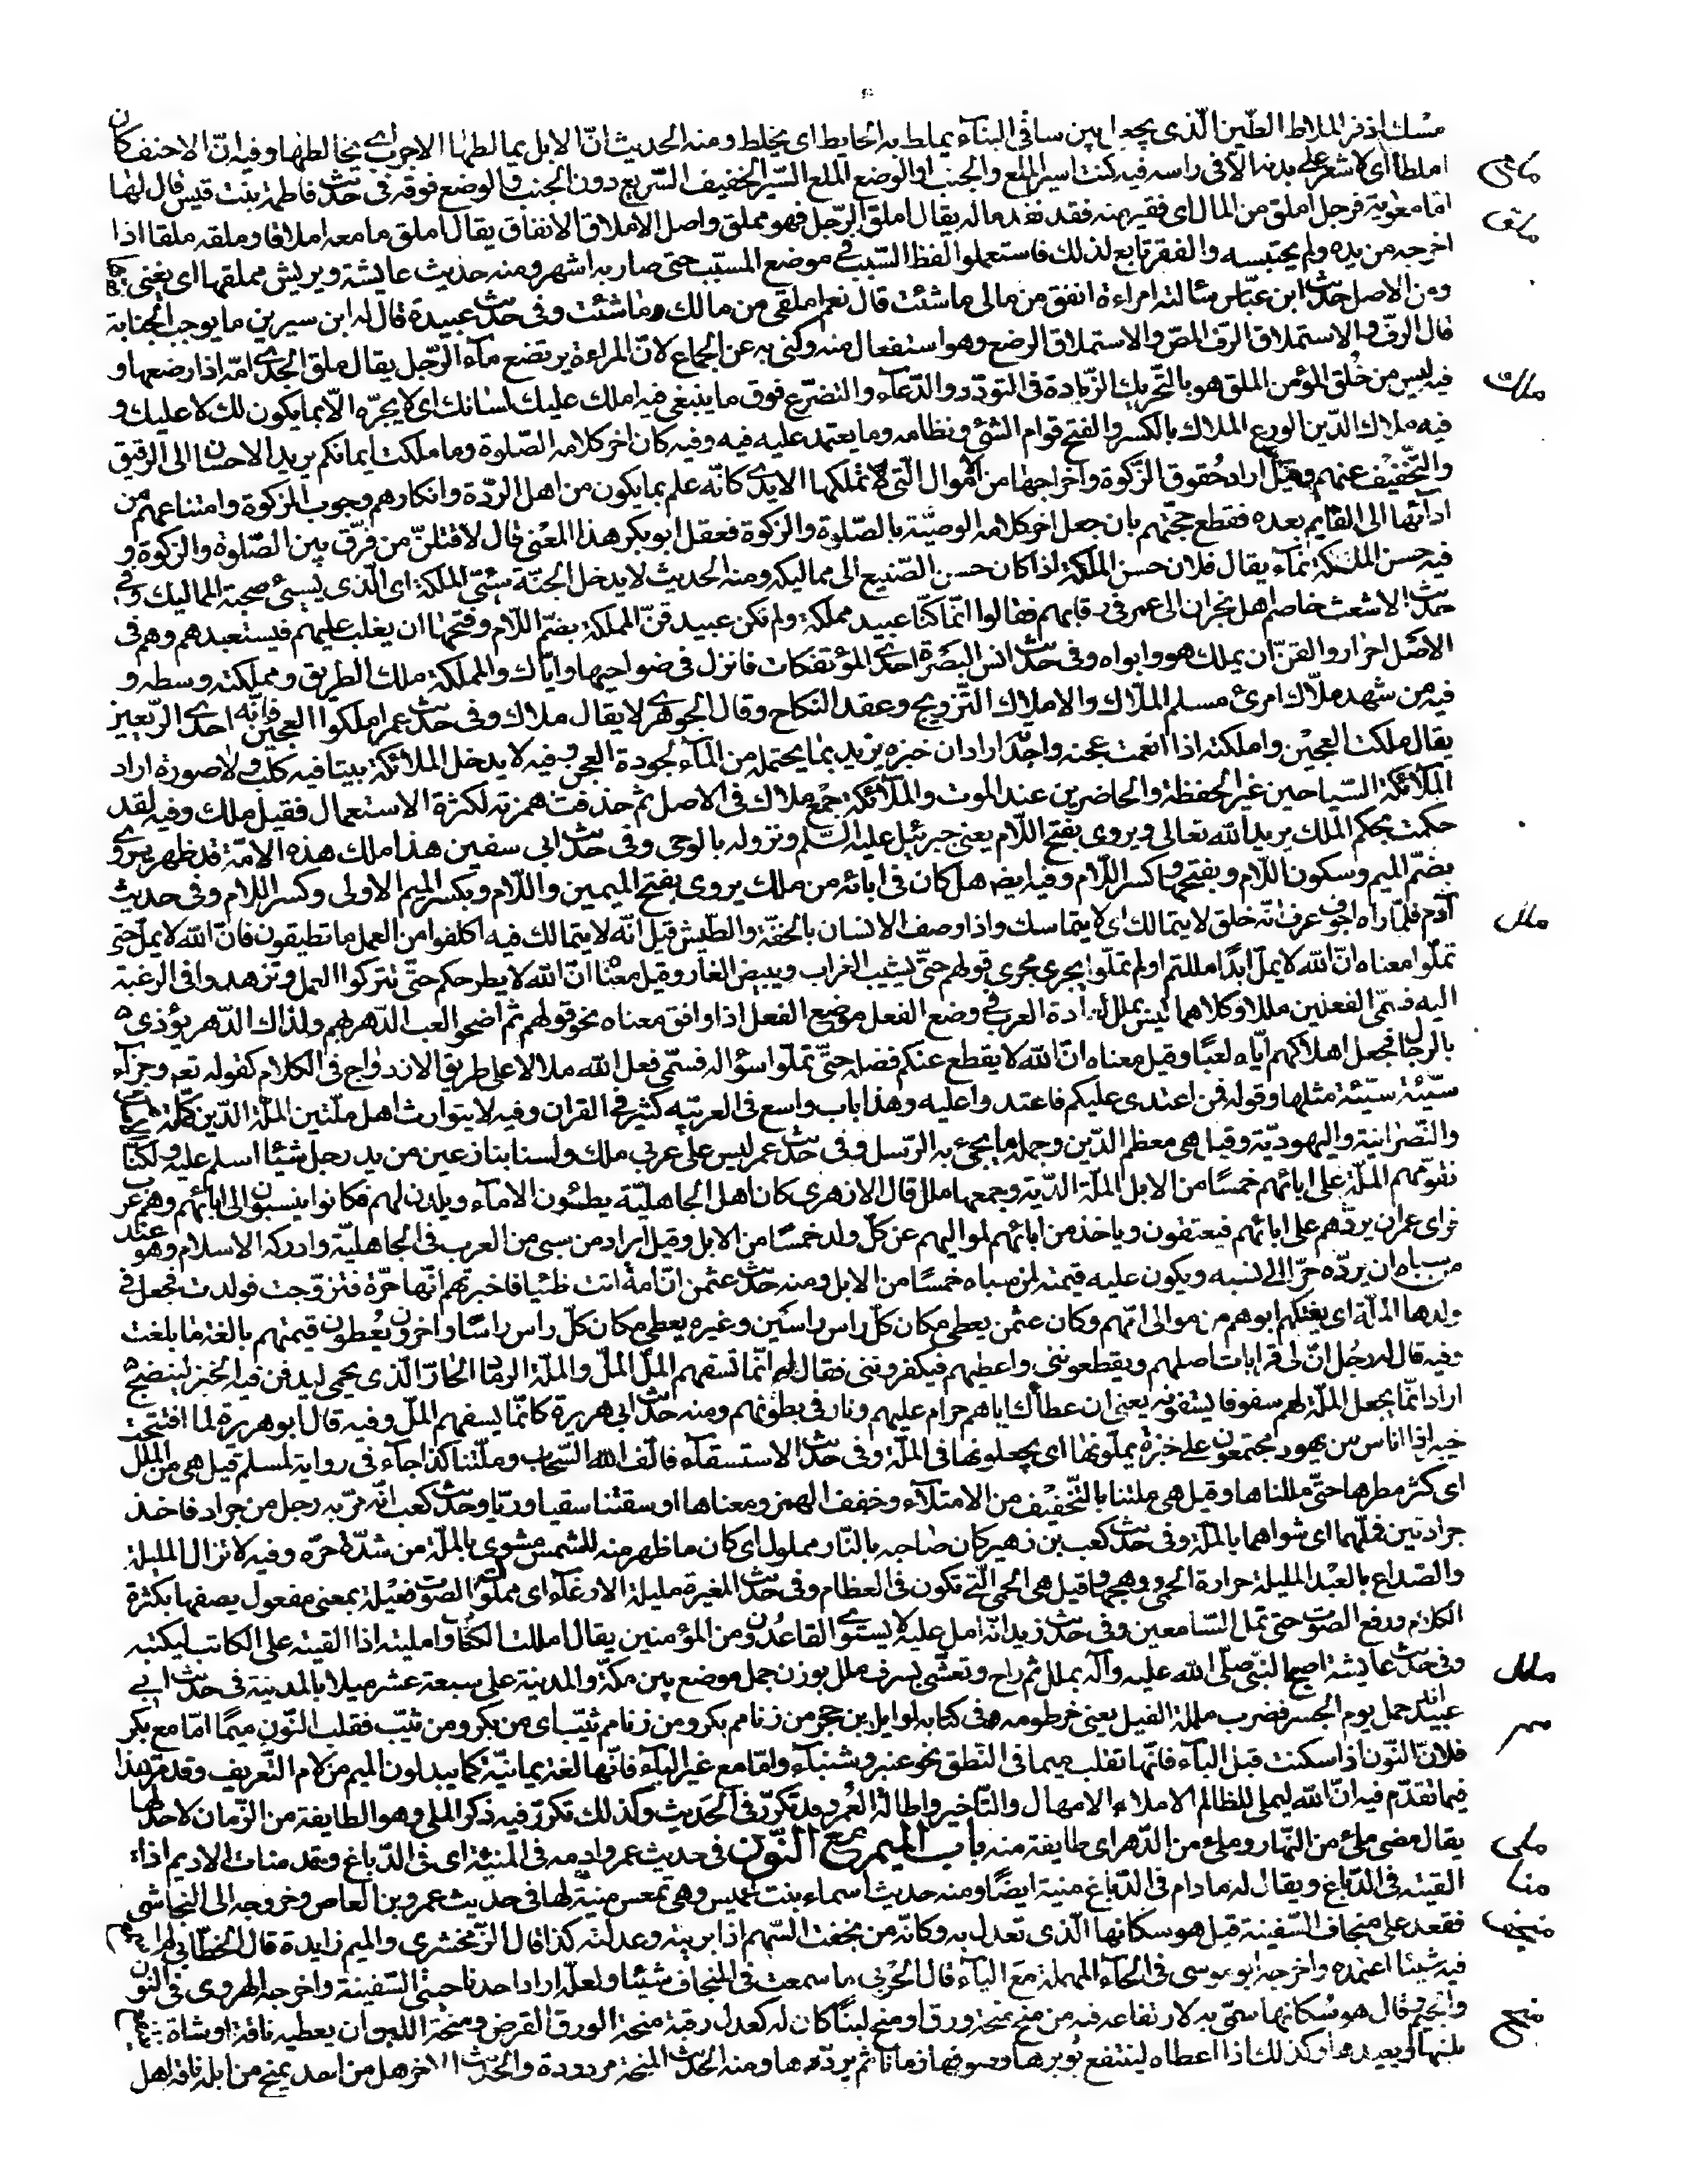 مسك اذفر الملاط الطّين الّذى يجعل بين ساقى البناء يملط به الحايط اى يخلط ومنه الحديث انّ الابل يمالطها الاجرب اى يخالطها وفيه انّ الاحنف كان
املط اى لا شعر على بدنه الا فى راسه فيه كنت اسير الملع والجنب او الوضع الملع السّير الخفيف السّريع دون الجنب والوضع فوقه فى حديث فاطمة بنت قيس قال لها
ملق
امّا معوية فرجل املق من المال اى فقير منه فقد نفد ماله يقال املق الرّجل فهو مملق واصل الاملاق الانفاق يقال املق ما معه املاقا وملقه ملقا اذا
اخرجه من يده ولم يحتبسه والفقر تابع لذلك فاستعملوا لفظ السّبب فى موضع المسبّب حتى صار به اشهر ومنه حديث عايشة ويريش مملقها اى يغنى
ومن الاصل حديث ابن عبّاس سالته امراة انفق من مالى ما شئت قال نعم املقى من مالك ما شئت وفى حديث عبيدة قال له ابن سيرين ما يوجب الجنابة
قال الرفّ والاستملاق الرّف المصّ والاستملاق الرضع وهو استفعال منه وكنى به عن الجماع لانّ المراءة يرتضع ماء الرّجل يقال ملق الجدى امّه اذا رضعها و
ملك
فيه ليس من خلق المؤمن الملق هو بالتّحريك الزّيادة فى التودّد والدّعاء والتضرّع فوق ما ينبغى فيه املك عليك لسانك اى لا يجرّه الّا بما يكون لك لا عليك و
فيه ملاك الدّين الورع الملاك بالكسر والفتح قوام الشئ ونظامه وما يعتمد عليه فيه وفيه كان اخر كلامه الصّلوة وما ملكت ايمانكم يريد الاحسان الى الرّقيق
والتّخفيف عنهم وقيل اراد حقوق الزّكوة واخراجها من الاموال الّتى تملكها الايدى كانّه علم بما يكون من اهل الردّة وانكارهم وجوب الزكوة وامتناعهم من
ادائها الى القايم بعده فقطع حجّتهم بان جعل اخر كلامه الوصيّة بالصّلوة والزكوة فعقل ابو بكر هذا المعنى قال لاقتلنّ من فرّق بين الصّلوة والزكوة و
فيه حسن الملكة نماء يقال فلان حسن الملكة اذا كان حسن الصّنيع الى مماليكه ومنه الحديث لا يدخل الجنّة سيّئ الملكة اى الّذى يسئ صحبة المماليك وفى
حديث الاشعث خاصم اهل نجران الى عمر فى رقابهم فقالوا انّما كنّا عبيد مملكة ولم نكن عبيد قنّ المملكة بضمّ اللّام وفتحها ان يغلب عليهم فيستعبدهم وهم فى
الاصل احرار والقنّ ان يملك هو وابواه وفى حديث انس البصرة احدى المؤتفكات فانزل فى ضواحيها وايّاك والمملكة ملك الطريق ومملكته وسطه و
فيه من شهد ملاك امرئ مسلم الملاك والاملاك التّزويج وعقد النكاح وقال الجوهرى لا يقال ملاك وفى حديث عمر املكوا العجين فانّه احدى الرّيعين
يقال ملكت العجين واملكته اذا انعمت عجنه واجدته اراد ان خبزه يزيد بما يحتمله من الماء لجودة العجن وفيه لا يدخل الملائكة بيتا فيه كلب ولا صورة اراد
الملائكة السّياحين غير الحفظة والحاضرين عند الموت والملائكة جمع ملاك فى الاصل ثم حذفت همزته لكثرة الاستعمال فقيل ملك وفيه لقد
حكمت بحكم الملك يريد الله تعالى ويروى بفتح اللّام يعنى جبرئيل عليه السّلم ونزوله بالوحى وفى حديث ابى سفين هذا ملك هذه الامّة قد ظهر يروى
بضمّ الميم وسكون اللّام وبفتحها وكسر اللّام وفيه ايضا هل كان فى ابائه من ملك يروى بفتح الميمين واللّام وبكسر الميم الاولى وكسر اللام وفى حديث
ملل
آدم فلمّا راه اجوف عرف انّه خلق لا يتمالك اى لا يتماسك واذا وصف الانسان بالخفّة والطّيش قيل انّه لا يتمالك فيه اكلفوا من العمل ما تطيقون فانّ الله لا يملّ حتى
تملّوا معناه انّ الله لا يملّ ابدًا مللتم او لم تملّوا يجرى مجرى قولهم حتّى يشيب الغراب ويبيض القار وقيل معناه انّ الله لا يطرحكم حتّى تتركوا العمل وتزهدوا فى الرغبة
اليه فسمّى الفعلين مللا وكلاهما ليس بملل عادة العرب فى وضع الفعل موضع الفعل اذا وافق معناه نحو قولهم ثم اضحوا لعب الدّهر بهم وكذاك الدّهر يؤذى
بالرجال فجعل اهلاكهم ايّاه لعبًا وقيل معناه انّ الله لا يقطع عنكم فضله حتّى تملّوا سؤاله فسمّى فعل الله مللا على طريق الازدواج فى الكلام كقوله تعالى وجزاء
سيّئة سيّئة مثلها وقوله فمن اعتدى عليكم فاعتدوا عليه وهذا باب واسع فى العربيّه كثير فى القران وفيه لا يتوارث اهل ملّتين الملّة الدّين كملّة
والنّصرانية واليهوديّة وقيل هى معظم الدّين وجملة ما يجئ به الرّسل وفى حديث عمر ليس على عربى ملك ولسنا بنازعين من يد رجل شيئا اسلم عليه ولكنّا
نقوّمهم الملّة على ابائهم خمسًا من الابل الملّة الدّية وجمعها ملل قال الازهرى كان اهل الجاهليّة يطئون الاماء ويلدن لهم فكانوا ينسبون الى ابائهم وهم عرب
فراى عمر ان يردّهم على ابائهم فيعتقون وياخذ من ابائهم لمواليهم عن كلّ ولد خمسًا من الابل وقيل اراد من سبى من العرب فى الجاهليّة وادركه الاسلام وهو عند
من سباه ان يردّه حرّا الى نسبه ويكون عليه قيمته لمن سباه خمسًا من الابل ومنه حديث عثمن انّ امة اتت طيّئا فاخبرتهم انّها حرّة فتزوّجت فولدت فجعل فى
ولدها الملّة اى يفتكّهم ابوهم من موالى امّهم وكان عثمن يعطى مكان كلّ راس راسين وغيره يعطى مكان كلّ راس راسًا واخرون يعطون قيمتهم بالغة ما بلغت
وفيه قال له رجل انّ لى قرابات اصلهم ويقطعوننى واعطيهم فيكفروننى فقال له انّما تسفهم الملّ الملّ والملّة الرماد الحارّ الّذى يحمى ليدفن فيه الخبز لينضج
اراد انّما يجعل الملّة لهم سفوفا يستفّونه يعنى ان عطاك اياهم حرام عليهم ونار فى بطونهم ومنه حديث ابى هريرة كانّما يسفهم الملّ وفيه قال ابو هريرة لما افتتحت
خيبر اذا اناس من يهود مجتمعون على خبزة يملّونها اى يجعلونها فى الملّة وفى حديث الاستسقاء فالّف الله السّحاب وملّتنا كذا جاء فى رواية لمسلم قيل هى من الملل
اى كثر مطرها حتّى مللناها وقيل هى ملتنا بالتّخفيف من الامتلاء وخفف الهمز ومعناها اوسقتنا سقيا وريّا وحديث كعب انّه مرّ به رجل من جراد فاخذ
جرادتين فملّهما اى شواهما بالملّة وفى حديث كعب بن زهير كان ضاحيه بالنّار مملول اى كان ما ظهر منه للشمس مشوى بالملّة من شدّة حرّه وفيه لا تزال المليلة
والصّداع بالعبد المليلة حرارة الحمى ووهجها وقيل هى الحمى الّتى تكون فى العظام وفى حديث المغيرة مليلة الارغاء اى مملولة الصّوت فعيلة بمعنى مفعول يصفها بكثرة
الكلام ورفع الصّوت حتى تملّ السّامعين وفى حديث زيد انّه امل عليه لا يستوى القاعدون من المؤمنين يقال امللت الكتاب وامليته اذا القيته على الكاتب ليكتبه
ملل
وفى حديث عايشة اصبح النبىّ صلّى الله عليه وآله بملل ثم راح وتعشّى بسرف ملل بوزن جمل موضع بين مكّة والمدينة على سبعة عشر ميلا بالمدينة فى حديث ابى
عبيد انّه حمل يوم الجسر فضرب ململة الفيل يعنى خرطومه وفى كتابه لوايل بن حجر من زنا مم بكر ومن زنا مم ثيّب اى من بكر ومن ثيّب فقلب النّون ميمًا امّا مع بكر
فلانّ النّون اذا سكنت قبل الباء فانّها تقلب ميما فى النّطق نحو عنبر وشنباء وامّا مع غير الباء فانّها لغة يمانيّة كما يبدلون الميم من لام التّعريف وقد مرّ هذا
فيما تقدّم فيه انّ الله ليملى للظالم الاملاء الامهال والتّاخير واطالة العمر وقد تكرّر فى الحديث وكذلك تكرّر فيه ذكر الملى وهو الطايفة من الزّمان لا حدّ لها
ملى
يقال مضى ملئ من النّهار وملئ من الدّهر اى طايفة منه باب الميم مع النّون فى حديث عمر وادمه فى المنيئة اى فى الدّباغ وقد منات الاديم اذا
منا
القيته فى الدّباغ ويقال له ما دام فى الدّباغ منيئة ايضًا ومنه حديث اسماء بنت عميس وهى تمعس منيئة لها فى حديث عمرو بن العاص وخروجه الى النجاشى
منجف
فقعد على منجاف السّفينة قيل هو سكانها الّذى تعدل به وكانّه من نجفت السّهم اذا بريته وعدلته كذا قال الزّمخشرى والميم زايدة قال الخطّابى لم
فيه شيئا اعتمده واخرجه ابو موسى فى الحاء المهملة مع الياء قال الحربى ما سمعت فى المنجاف شيئا ولعلّه اراد احد ناحيتى السّفينة واخرجه الهروى فى النون
منح
والجيم وقال هو سكانها سمّى به لارتفاعه فيه من منح منحة ورق او منح لبنًا كان له كعدل رقبة منحة الورق القرض ومنحة اللبن ان يعطيه ناقة او شاة
بلبنها ويعيدها وكذلك اذا اعطاه لينتفع بوبرها وصوفها زمانا ثم يردّها ومنه الحديث المنحة مردودة والحديث الاخر هل من احد يمنح من ابله ناقة اهل